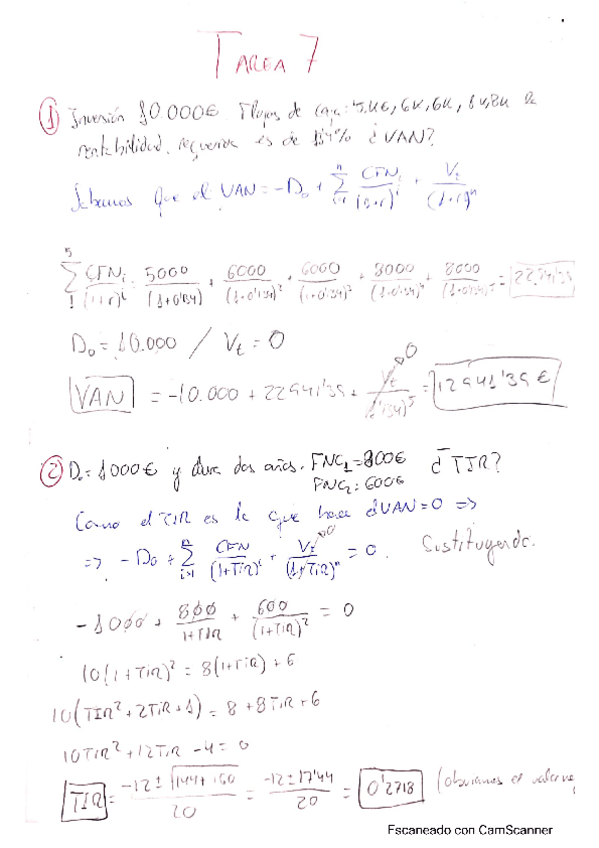 TAREA 7
① Inversión 10.000€. Flujos de caja: 5K€, 6K, 6K, 8K, 8K. La
rentabilidad requerida es de 13'4% ¿VAN?
Sabemos que el VAN = -D₀ + Σⁿᵢ₌₁ CFNᵢ/(1+r)ⁱ + Vₜ/(1+r)ⁿ
Σ⁵₁ CFNᵢ/(1+r)ⁱ = 5000/(1+0'134) + 6000/(1+0'134)² + 6000/(1+0'134)³ + 8000/(1+0'134)⁴ + 8000/(1+0'134)⁵ = 22941'39
D₀ = 10.000 / Vₜ = 0
VAN = -10.000 + 22941'39 + Vₜ/(1'134)⁵ → 0 = 12941'39 €
② D₀ = 1000€ y dura dos años. FNC₁ = 800€ ¿TIR?
FNC₂ = 600€
Como el TIR es la que hace el VAN = 0 =>
=> -D₀ + Σⁿᵢ₌₁ CFN/(1+TIR)ⁱ + Vₜ/(1+TIR)ⁿ → 0 = 0. Sustituyendo.
-1000 + 800/(1+TIR) + 600/(1+TIR)² = 0
10(1+TIR)² = 8(1+TIR) + 6
10(TIR² + 2TIR + 1) = 8 + 8TIR + 6
10TIR² + 12TIR - 4 = 0
TIR = (-12 ± √(144+160))/20 = (-12 ± 17'44)/20 = 0'2718 (obviamos el valor neg
Escaneado con CamScanner